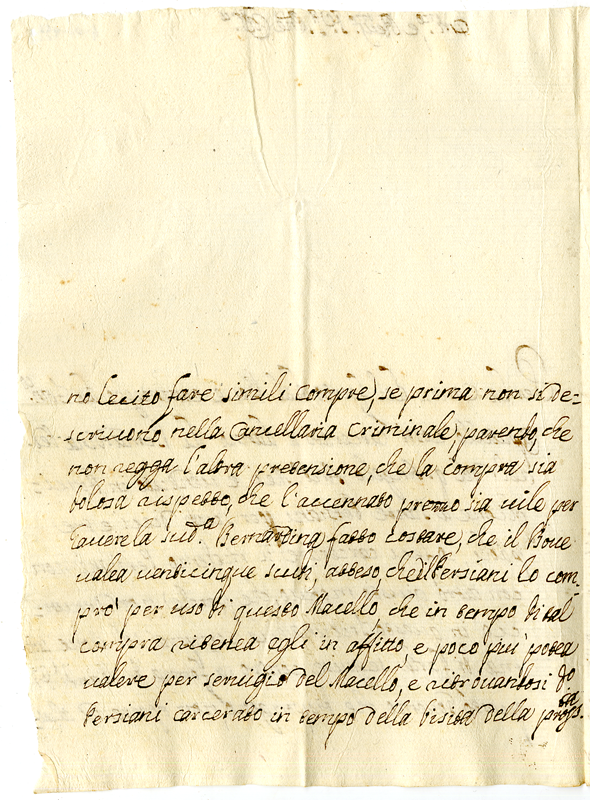 no lecito fare simili compre, se prima non si de=
scrivono nella Cancellaria Criminale, parendo, che
non regga l'altra pretensione, che la compra sia
dolosa rispetto, che l'accennato prezzo sia vile per
haver la sud.a Bernardina fatto costare, che il Bove
valea venticinque scudi, atteso, che il Persiani lo com=
prò per uso di questo Macello che in tempo di tal
compra ritenea egli in affitto, e poco più potea
valere per servigio del Macello, e ritrovandosi do
Persiani carcerato in tempo della visita della